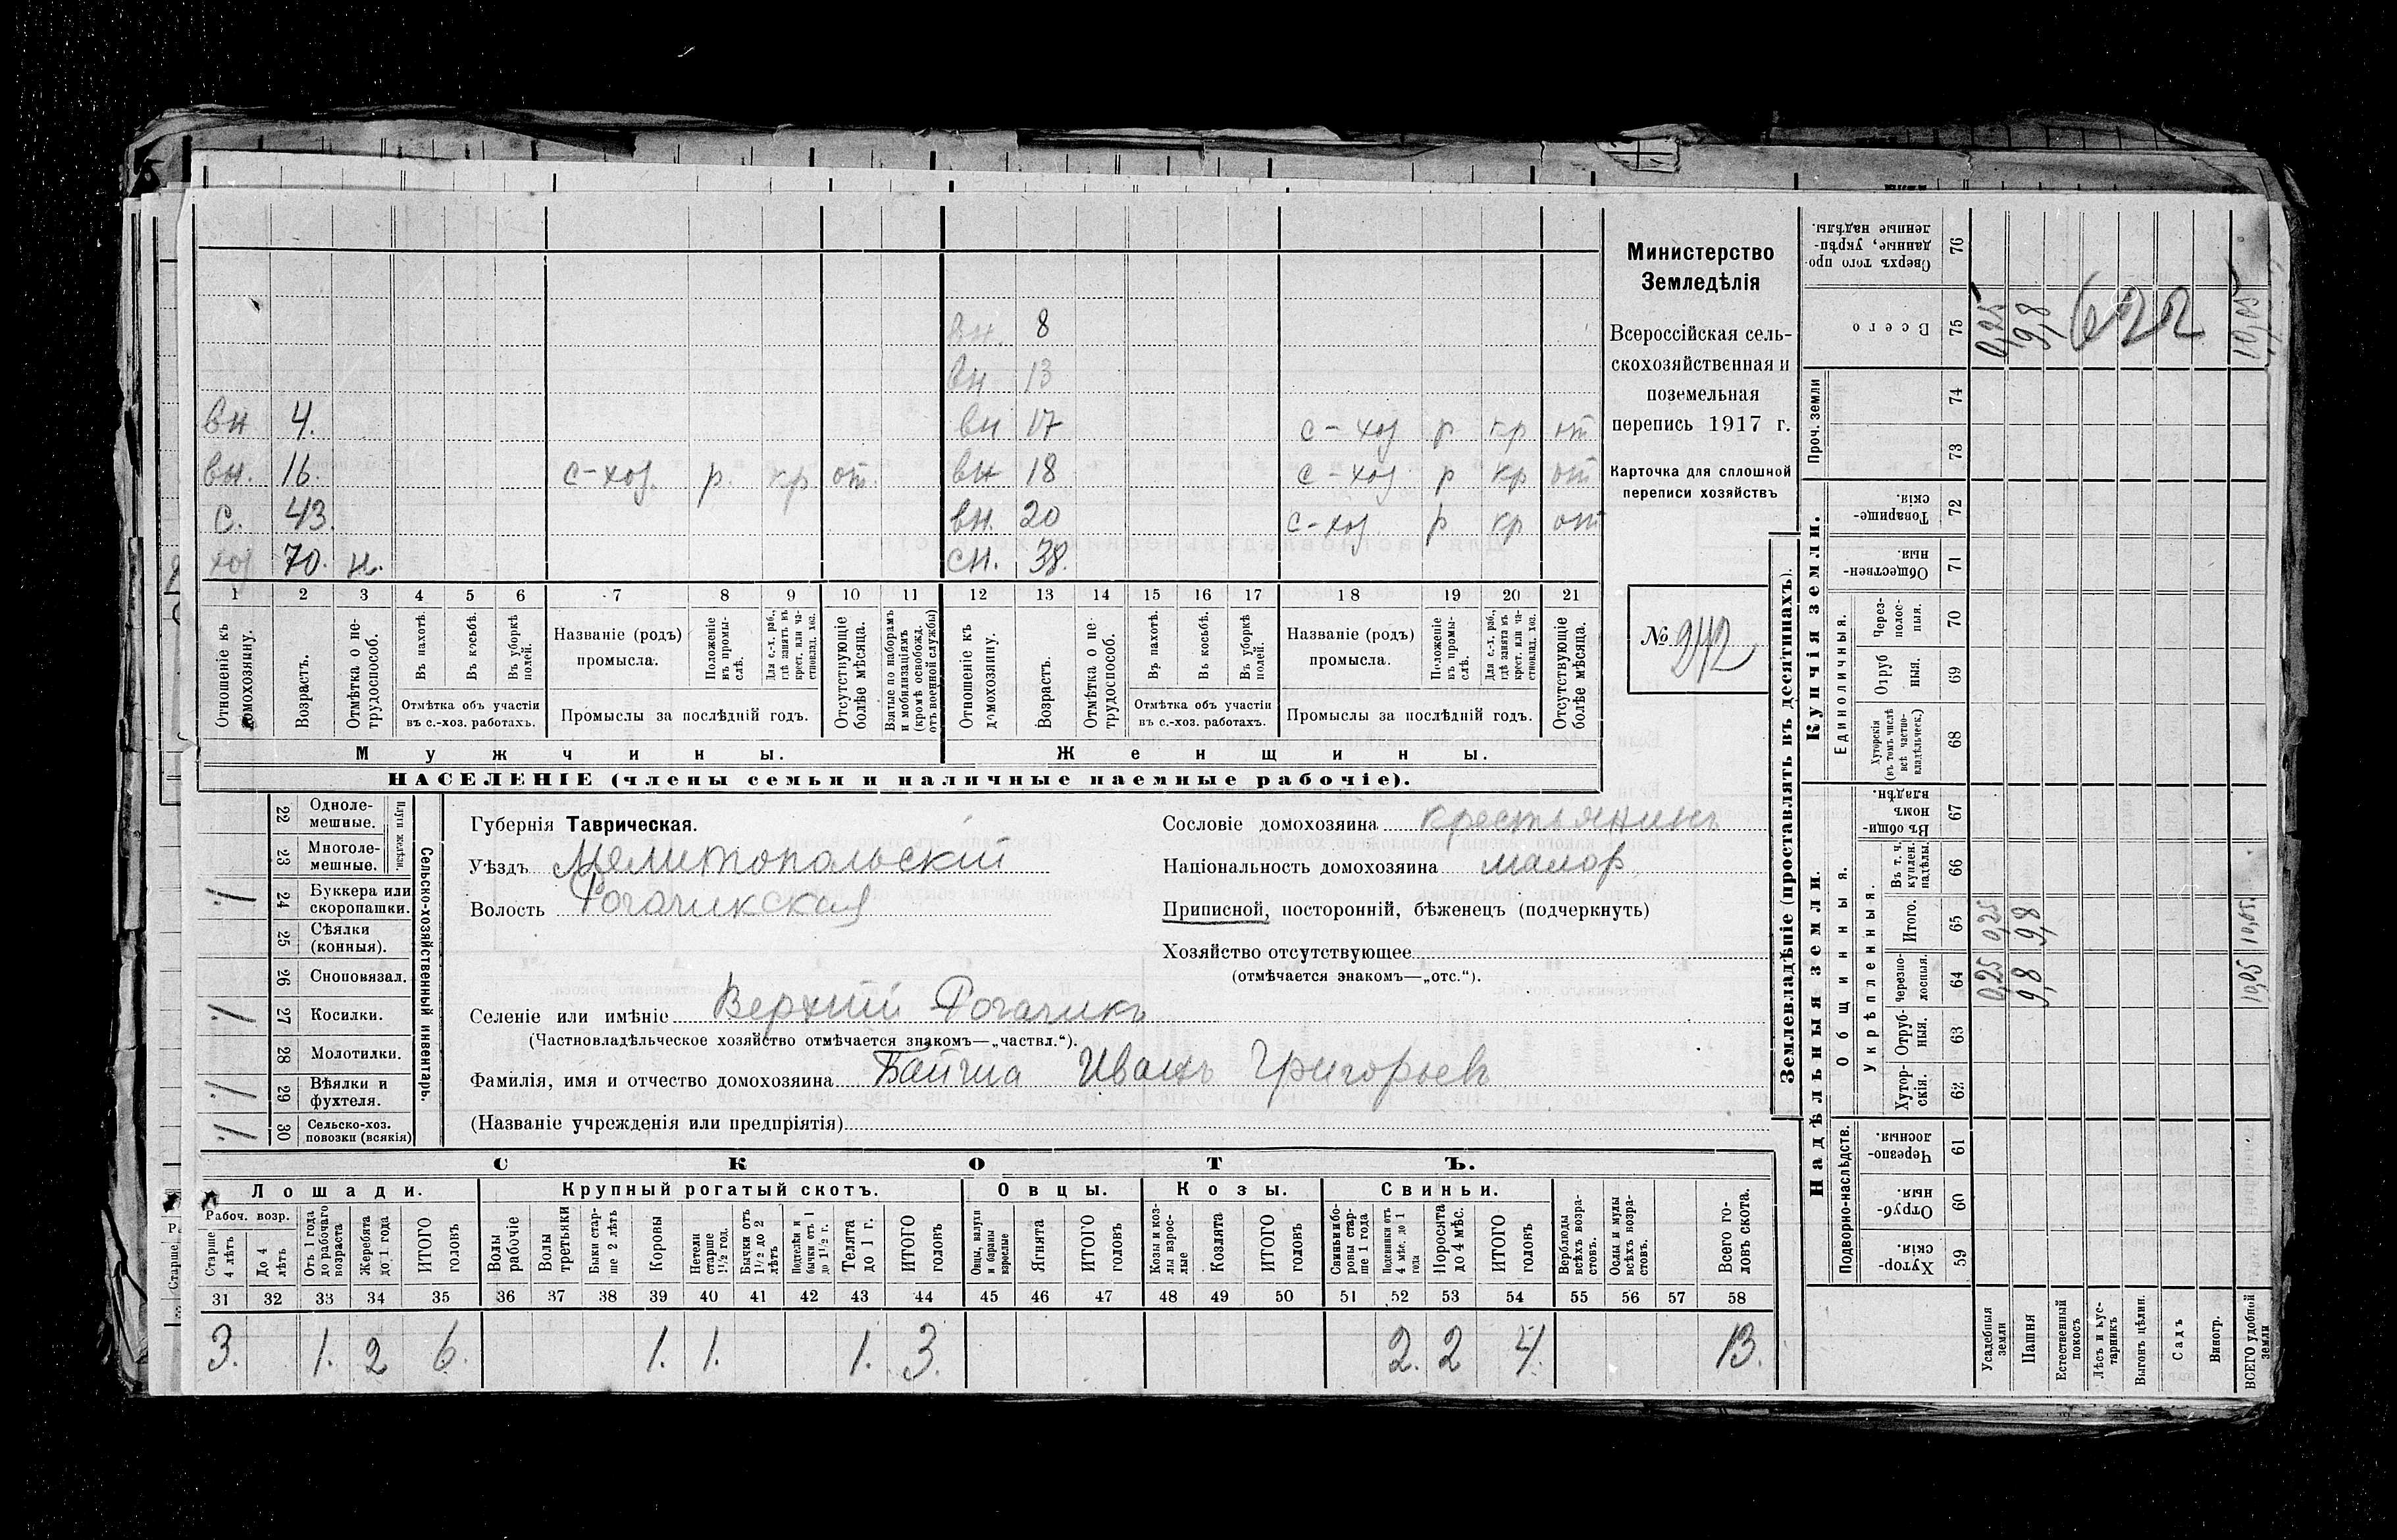 вн. 8
вн 13
вн 4. вн 17 с-хоз р кр от
вн. 16. с-хоз. р. кр от. вн 18 с-хоз р кр от
с. 43. вн. 20 с-хоз р кр от
хоз 70. н. сн. 38.
1 2 3 4 5 6 7 8 9 10 11 12 13 14 15 16 17 18 19 20 21
Отношеніе къ домохозяину.
Возрастъ.
Отмѣтка о нетрудоспособ.
Въ пахотѣ.
Въ косьбѣ.
Въ уборкѣ полей.
Отмѣтка объ участіи
въ с.-хоз. работахъ.
Названіе (родъ)
промысла.
Положеніе въ промыслѣ.
Для с.-х. раб., гдѣ занятъ въ крест. или частновлад. хоз.
Промыслы за послѣдній годъ.
Отсутствующіе болѣе мѣсяца.
Взятые по наборамъ и мобилизаціямъ (кромѣ освобожд. отъ военной службы)
Отношеніе къ домохозяину.
Возрастъ.
Отмѣтка о нетрудоспособ.
Въ пахотѣ.
Въ косьбѣ.
Въ уборкѣ полей.
Отмѣтка объ участіи
въ с.-хоз. работахъ.
Названіе (родъ)
промысла.
Положеніе въ промыслѣ.
Для с.-х. раб., гдѣ занята въ крест. или частновлад. хоз.
Промыслы за послѣдній годъ.
Отсутствующіе болѣе мѣсяца.
Мужчины. Женщины.
НАСЕЛЕНІЕ (члены семьи и наличные наемные рабочіе).
Министерство
Земледѣлія
Всероссійская сель-
скохозяйственная и
поземельная
перепись 1917 г.
Карточка для сплошной
переписи хозяйствъ
№ 242
22 Одноле-
мешные.
23 Многоле-
мешные.
Плуги желѣзн.
24 Буккера или
скоропашки. 1/1
25 Сѣялки
(конныя).
26 Сноповязал.
27 Косилки. 1/1
28 Молотилки.
29 Вѣялки и
фухтеля. 1/1
30 Сельско-хоз.
повозки (всякія) 1/1
Сельско-хозяйственный инвентарь.
Губернія Таврическая.
Уѣздъ Мелитопольскій
Волость Рогачикская
Селеніе или имѣніе Верхній Рогачикъ
(Частновладѣльческое хозяйство отмѣчается знакомъ—„частвл.“).
Фамилія, имя и отчество домохозяина Байша Иванъ Григорьевъ
(Названіе учрежденія или предпріятія)
Сословіе домохозяина крестьянинъ
Національность домохозяина малор.
Приписной, посторонній, бѣженецъ (подчеркнуть)
Хозяйство отсутствующее
(отмѣчается знакомъ—„отс.“).
СКОТЪ.
Лошади. Крупный рогатый скотъ. Овцы. Козы. Свиньи.
Рабоч. возр.
Старше 4 лѣтъ
До 4 лѣтъ
Отъ 1 года до рабочаго возраста
Жеребята до 1 года
ИТОГО головъ
Волы рабочіе
Волы третьяки
Быки старше 2 лѣтъ
Коровы
Нетели старше 1½ год.
Бычки отъ 1½ до 2 лѣтъ
Подтелки и бычки отъ 1 до 1½ г.
Телята до 1 г.
ИТОГО головъ
Овцы, валухи и бараны взрослые
Ягнята
ИТОГО головъ
Козы и козлы взрослые
Козлята
ИТОГО головъ
Свиньи и боровы старше 1 года
Подсвинки отъ 4 мѣс. до 1 года
Поросята до 4 мѣс.
ИТОГО головъ
Верблюды всѣхъ возрастовъ.
Ослы и мулы всѣхъ возрастовъ.
Всего головъ скота.
31 32 33 34 35 36 37 38 39 40 41 42 43 44 45 46 47 48 49 50 51 52 53 54 55 56 57 58
3. 1. 2 6. 1. 1. 1. 3. 2. 2 4. 13.
Землевладѣніе (проставлять въ десятинахъ).
Купчія земли.
Надѣльныя земли.
Сверхъ того проданные, укрѣпленные надѣлы. 76
Всего 75 0,25 9,8 10,05
622
Проч. земли 74 73
Товарищескія. 72
Общественныя. 71
Единоличныя.
Черезполосныя. 70
Отрубныя. 69
Хуторскія (въ томъ числѣ всѣ частновладѣльческ.) 68
Общинныя.
Въ общинномъ владѣн. 67
Укрѣпленныя.
Въ т. ч. куплен. надѣлы. 66
Итого. 65 0,25 9,8 10,05.
Черезполосныя. 64 0,25 9,8 10,05
Отрубныя. 63
Хуторскія. 62
Подворно-наслѣдств.
Черезполосныя. 61
Отрубныя. 60
Хуторскія. 59
Усадебныя земли
Пашня
Естественный покосъ
Лѣсъ и кустарникъ
Выгонъ цѣлин.
Садъ
Виногр.
ВСЕГО удобной земли